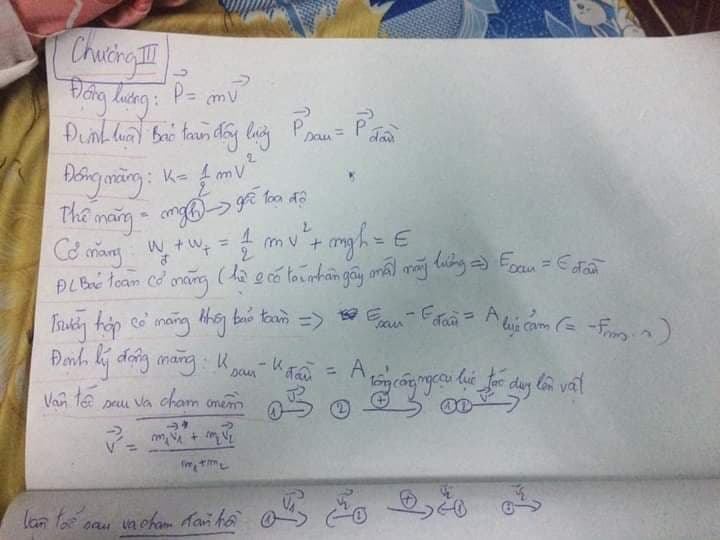 Chương III
Động lượng: P⃗ = mV⃗
Định luật Bảo toàn động lượng P⃗sau = P⃗đầu
Động năng: K = 1/2 mV²
Thế năng = mgh → gốc tọa độ
Cơ năng: Wđ + Wt = 1/2 mV² + mgh = E
ĐL Bảo toàn cơ năng (hệ 0 có tác nhân gây mất năng lượng => Esau = Eđầu
Trường hợp cơ năng không bảo toàn => Esau - Eđầu = A lực cản (= -Fms.s)
Định lý động năng: Ksau - Kđầu = A tổng công ngoại lực tác dụng lên vật
Vận tốc sau va chạm mềm ① → V⃗ ② (+) → ①② → V⃗'
V⃗' = (m₁V⃗₁ + m₂V⃗₂) / (m₁+m₂)
Vận tốc sau va chạm đàn hồi ① → V⃗₁ ← ② V⃗₂ (+) → ← ① V⃗₂ → V⃗₂